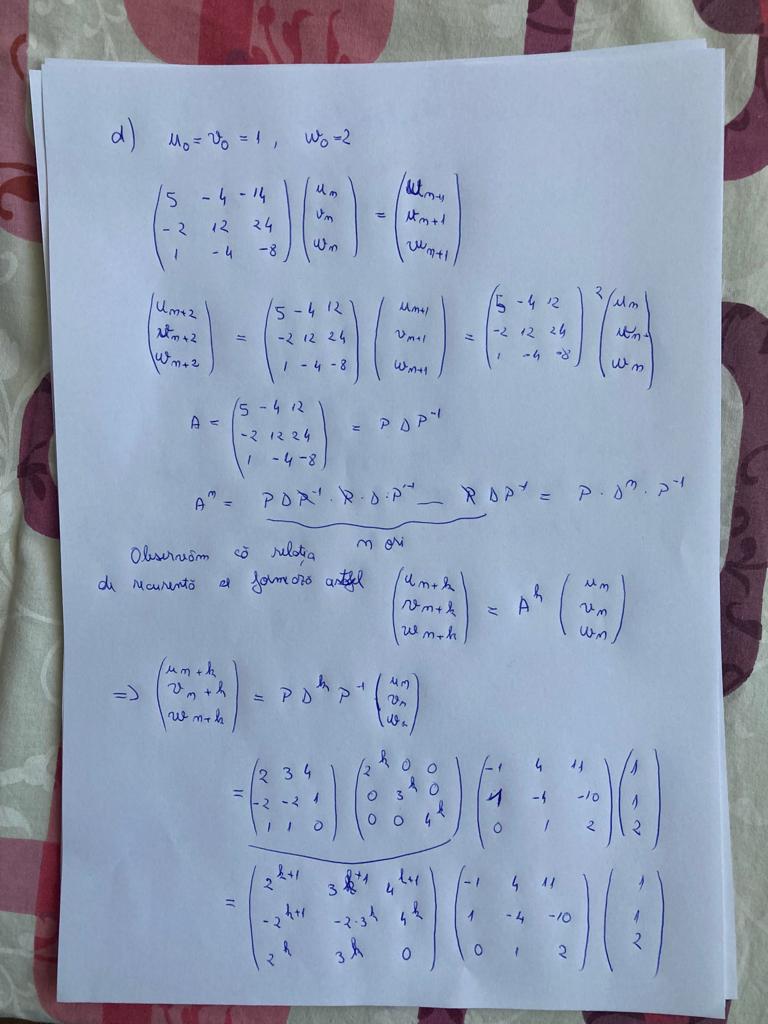 d) u₀ = v₀ = 1, w₀ = 2
(5 -4 -14; -2 12 24; 1 -4 -8) (uₙ; vₙ; wₙ) = (uₙ₊₁; vₙ₊₁; wₙ₊₁)
(uₙ₊₂; vₙ₊₂; wₙ₊₂) = (5 -4 12; -2 12 24; 1 -4 -8) (uₙ₊₁; vₙ₊₁; wₙ₊₁) = (5 -4 12; -2 12 24; 1 -4 -8)² (uₙ; vₙ; wₙ)
A = (5 -4 12; -2 12 24; 1 -4 -8) = P D P⁻¹
Aⁿ = P D P⁻¹ · P · D · P⁻¹ _ P D P⁻¹ = P · Dⁿ · P⁻¹
n ori
Observăm că relația
de recurență se formează astfel (uₙ₊ₖ; vₙ₊ₖ; wₙ₊ₖ) = Aᵏ (uₙ; vₙ; wₙ)
=> (uₙ₊ₖ; vₙ₊ₖ; wₙ₊ₖ) = P Dᵏ P⁻¹ (uₙ; vₙ; wₙ)
= (2 3 4; -2 -2 1; 1 1 0) (2ᵏ 0 0; 0 3ᵏ 0; 0 0 4ᵏ) (-1 4 11; 1 -4 -10; 0 1 2) (1; 1; 2)
= (2ᵏ⁺¹ 3ᵏ⁺¹ 4ᵏ⁺¹; -2ᵏ⁺¹ -2·3ᵏ 4ᵏ; 2ᵏ 3ᵏ 0) (-1 4 11; 1 -4 -10; 0 1 2) (1; 1; 2)